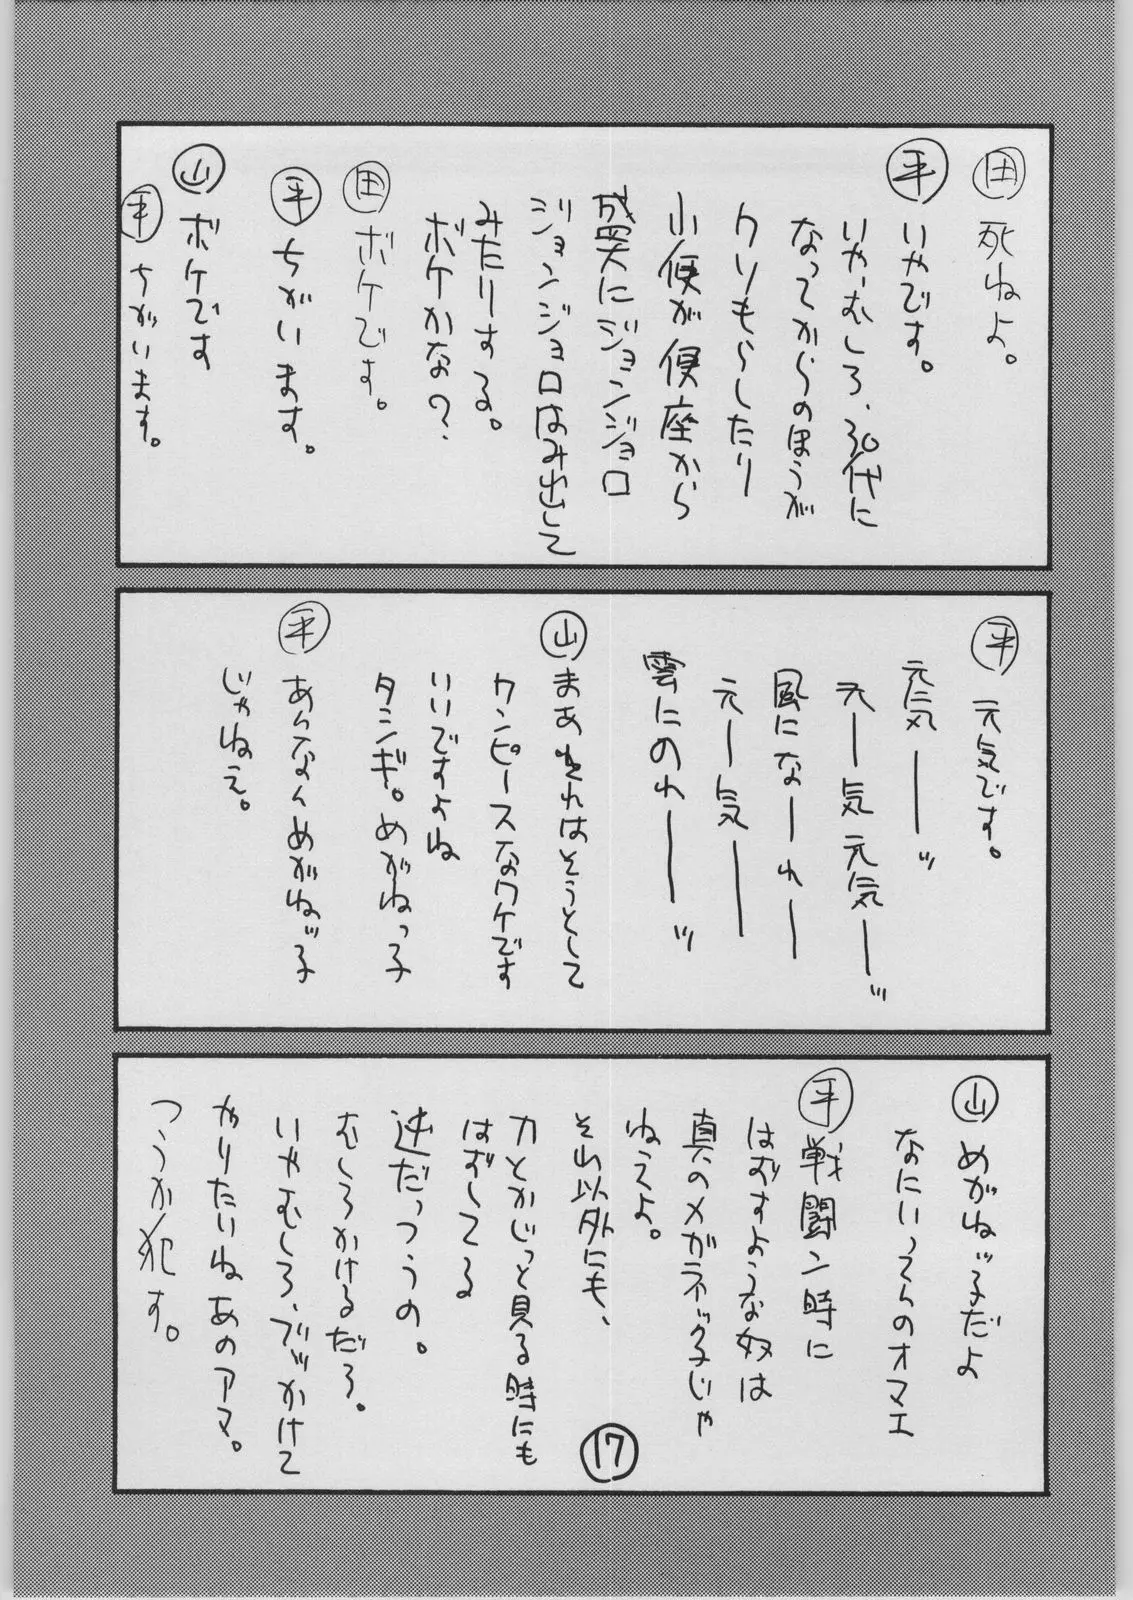 田 死ねよ。
平 いやです。
いやむしろ、30代に
なってからのほうが
クソもらしたり
小便が便座から
盛大にジョンジョロ
ジョンジョロはみ出して
みたりする。
ボケかな？
田 ボケです。
平 ちがいます。
山 ボケです
平 ちがいます。
平 元気です。
元気ーッ
元ー気元気ーッ
風になーれー
元ー気ー
雲にのれーッ
山 まあそれはそうとして
ワンピースなワケです
いいですよね
タシギ。めがねっ子
平 あんなんめがねッ子
じゃねえ。
山 めがねッ子だよ
なにいってんのオマエ
平 戦闘ン時に
はずすような奴は
真のメガネッ子じゃ
ねえよ。
それ以外にも、
刀とかじっと見る時にも
はずしてる
逆だっつうの。
むしろかけるだろ。
いやむしろ、ブッかけて
やりたいねあのアマ。
つうか犯す。
17